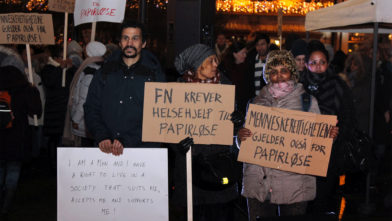 MENNESKERETTIGHETER
GJELDER OGSÅ FOR
PAPIRLØSE
PAPIRLØSE
FN KREVER
HELSEHJELP TIL
PAPIRLØSE
MENNESKERETTIGHETENE
GJELDER OGSÅ FOR
PAPIRLØSE
I AM A MAN AND I HAVE
A RIGHT TO LIVE IN A
SOCIETY THAT SUITS ME,
ACCEPTS ME AND SUPPORTS
ME!